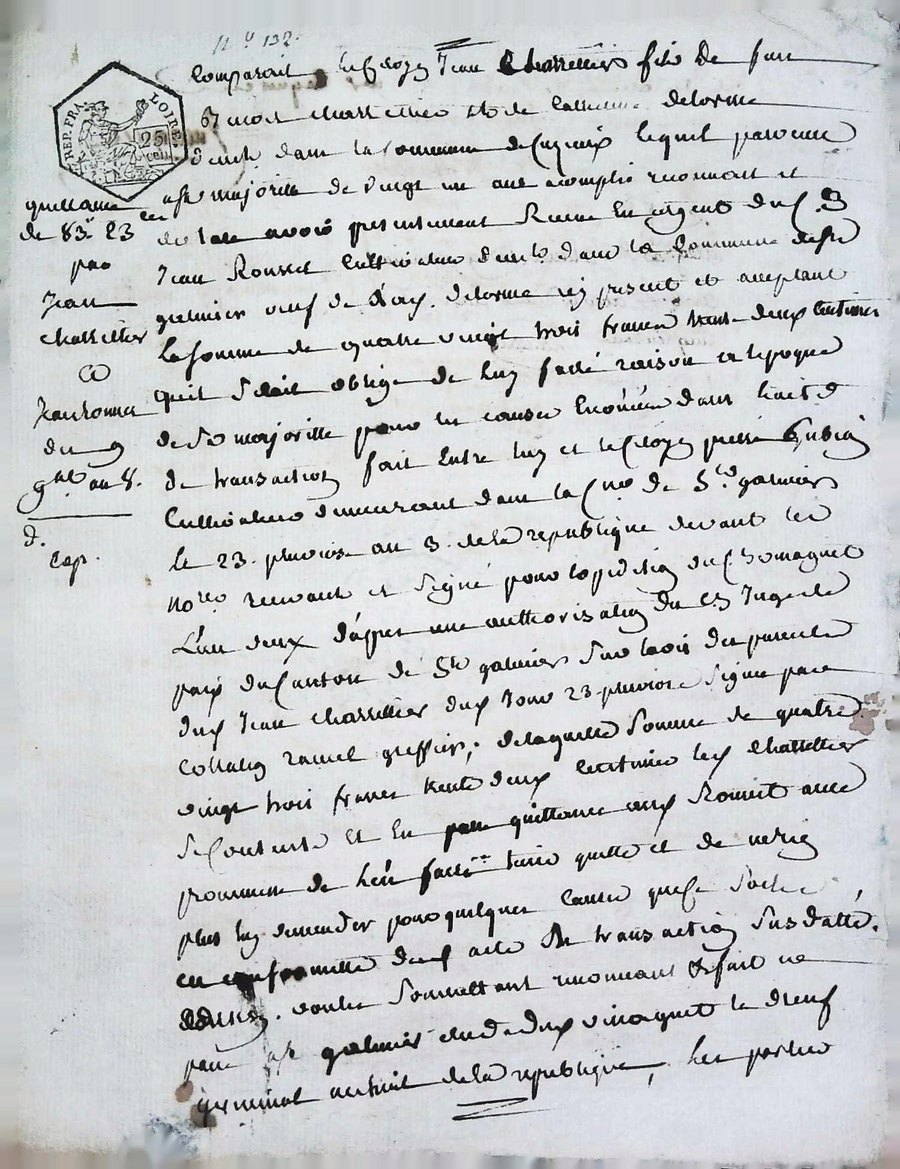 n.º 132.
REP. FRA.
LOIRE.
25
cen.
Comparait le Cloyen Jean Chattellier fils de feu
Benoit chattellier et de Catherine delorme
demt. dans la Commune de Cuzieux lequel parvenu
a sa majoritté de vingt un ans acomplis reconnait et
de lare avoir presentement Receu En argent du C.
Jean Rousset Cultivateur demt. dans la Commune de St
galmier veuf de delorme icy present et acceptant
la somme de quatre vingt trois francs trente deux Centimes
quil S'etait obligé de luy faire raison a lepoque
de Sa majoritté pour les causes Enoncées dans l'acte
de transaction fait Entre luy et le Cloyen pierre
Cultivateur demeurant dans la Cne. de St. galmier
le 23. pluviose an 3. de la republique devant les
nores. recevant et Signé pour lexpedition du C
L'un d'eux d'apres une authorisation du C. Juge de
paix du Canton de St galmier Sur lavis des parents
dud. Jean Chattellier dud. jour 23. pluviose Signé par
Collation greffier; de laquelle Somme de quatre
vingt trois francs trente deux Centimes led. Chattellier
Se Contente et En passe quittance aud. Rousset avec
promesse de l'en faire tenir quitte et de ne rien
plus luy demander pour quelque Cause que ce Soit
en conformitté dud. acte de transaction Susdatté.
voulu Soumettant renoncant & fait
a St galmier etude dud. vinaquet le dix neuf
germinal an huit de la republique, les parties
quittance
de 83. 23 cen
par
Jean
chattellier
a
Jean
du 9
an 8.
d.
Cop.